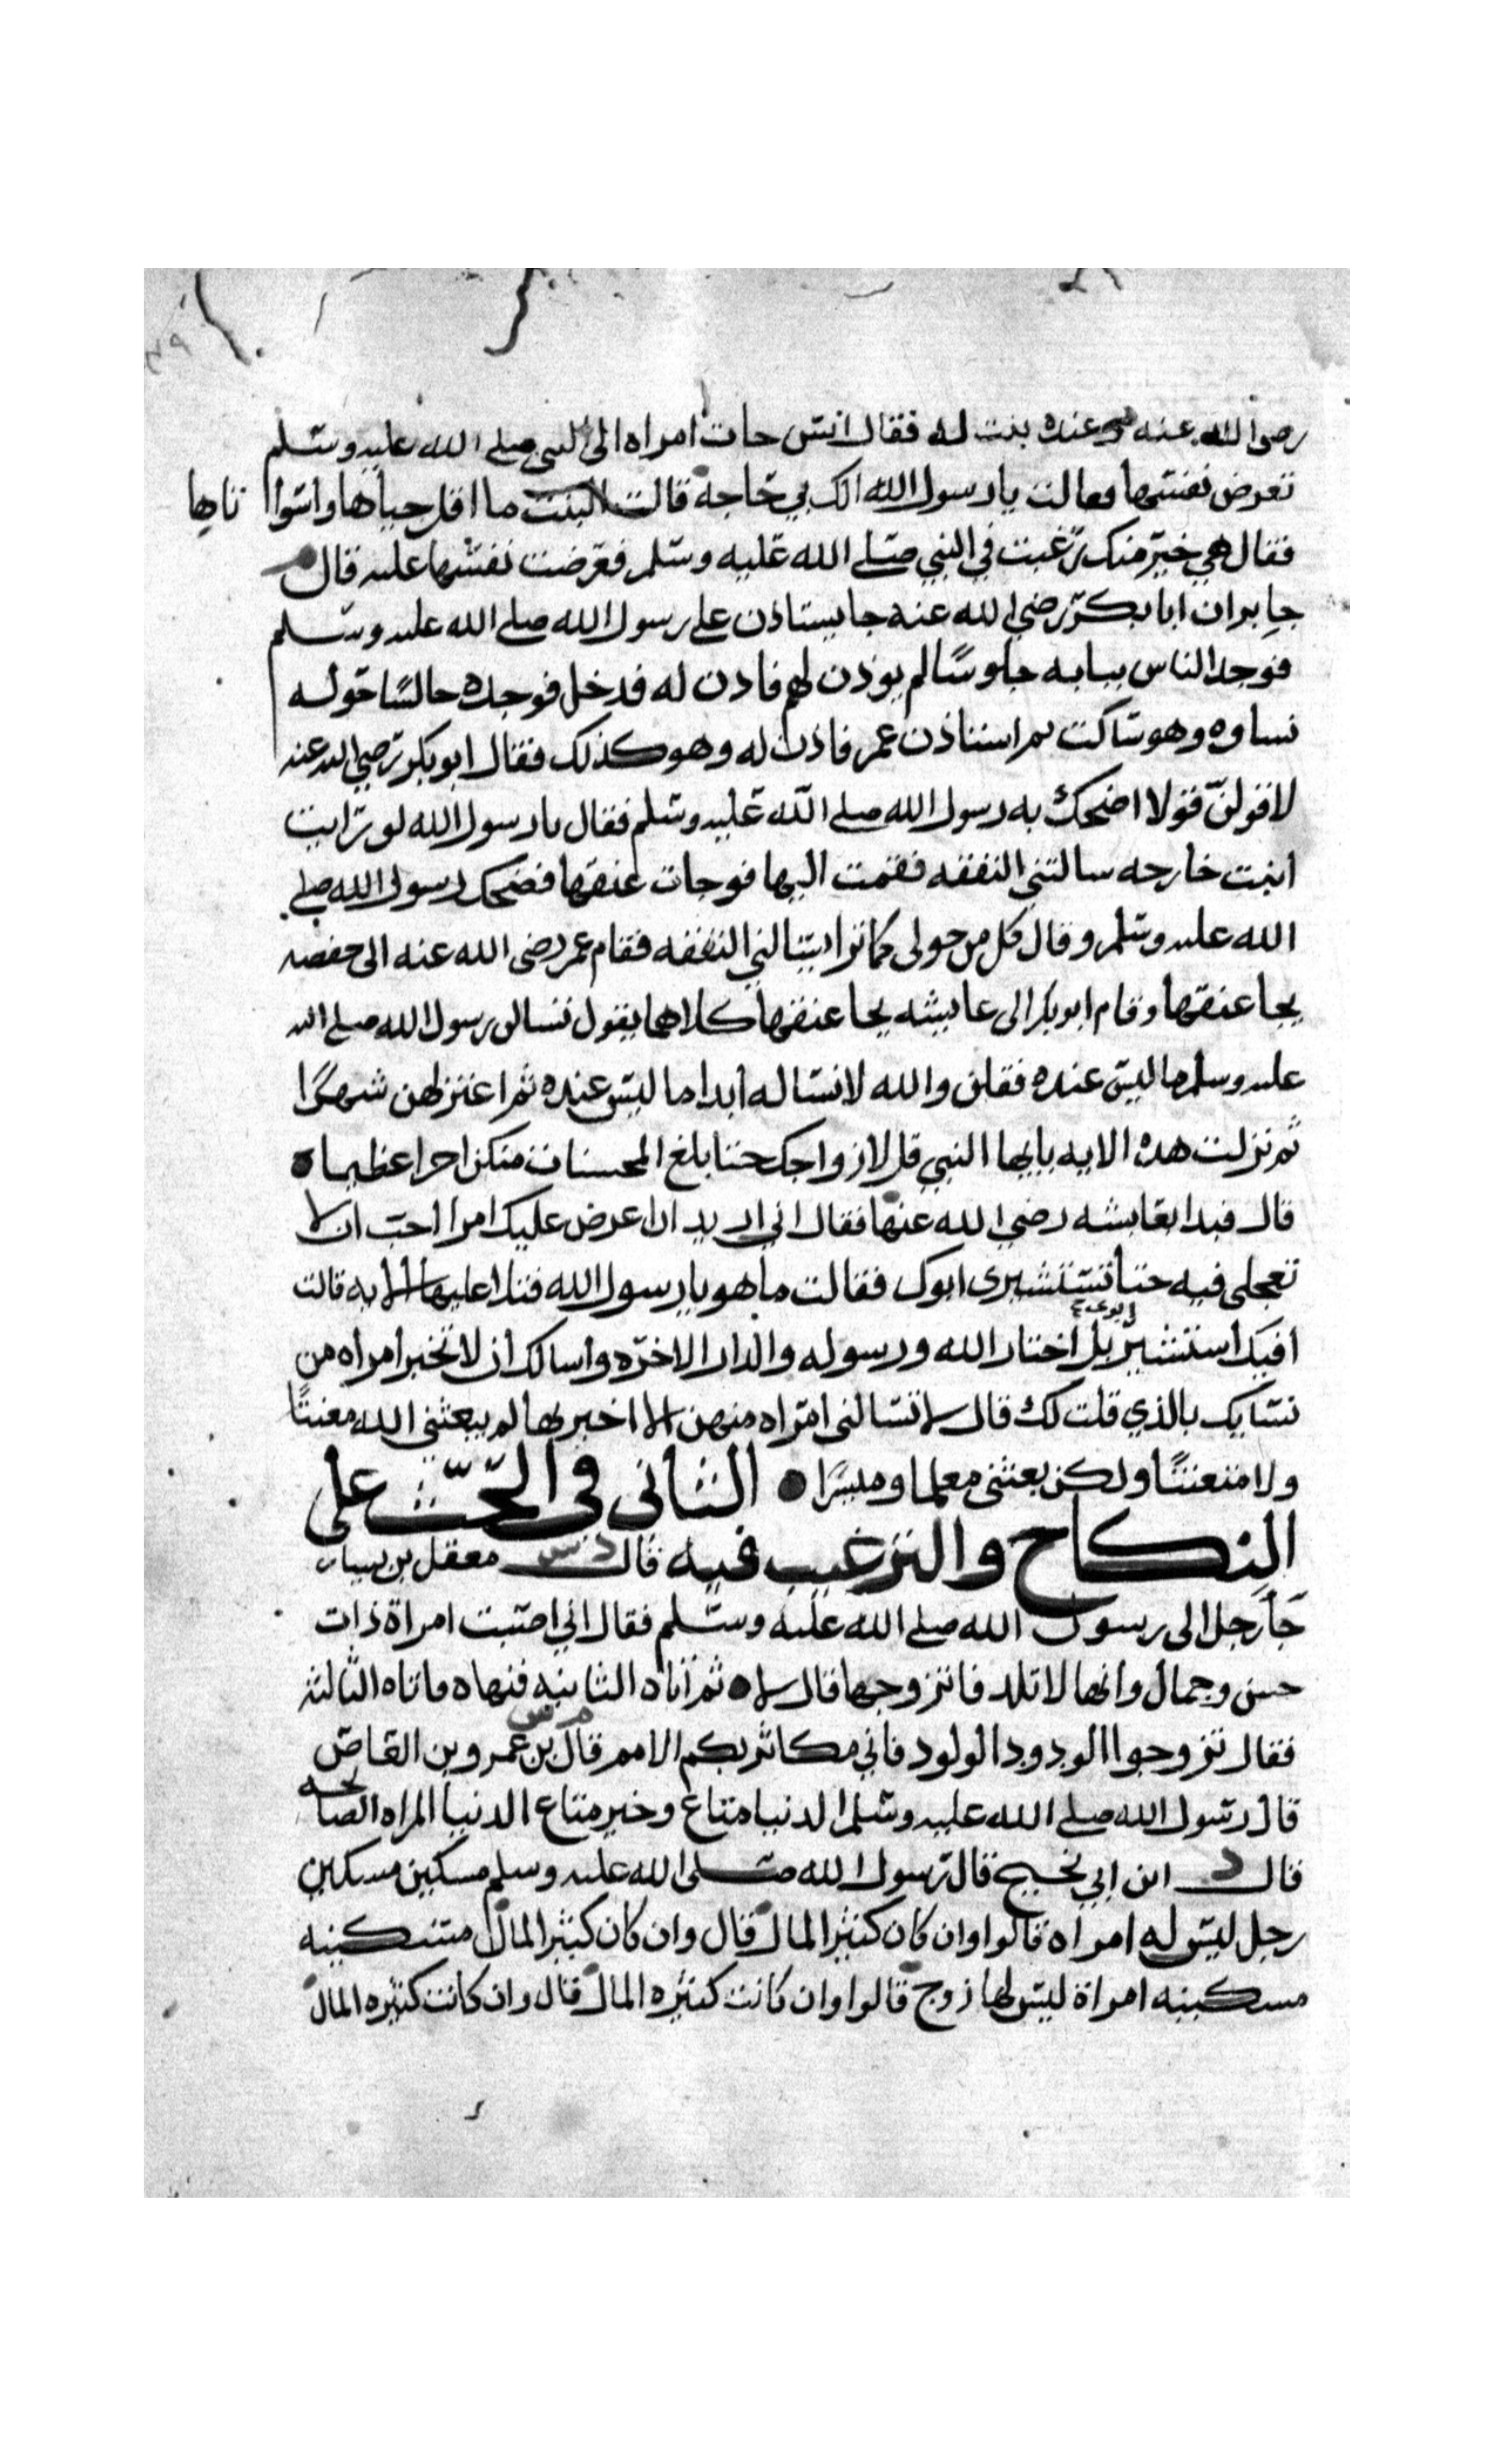 رضى الله عنه وعنده بنت له فقال انس جات امراه الى النبى صلى الله عليه وسلم
تعرض نفسها فقالت يا رسول الله الك بي حاجة قالت البنت ما اقل حياها واسوا تاها
فقال هي خير منك رغبت في النبي صلى الله عليه وسلم فعرضت نفسها عليه قال
جابر ان ابا بكر رضي الله عنه جا يستاذن على رسول الله صلى الله عليه وسلم
فوجد الناس ببابه جلوسًا لم يوذن لهم فاذن له فدخل فوجده جالسًا حوله
نساوه وهو ساكت ثم استاذن عمر فاذن له وهو كذلك فقال ابو بكر رضي الله عنه
لاقولن قولا اضحك به رسول الله صلى الله عليه وسلم فقال يا رسول الله لو رايت
ابنت خارجه سالتنى النفقه فقمت اليها فوجات عنقها فضحك رسول الله صلى
الله عليه وسلم وقال كل من حولى كما ترا يسالني النفقه فقام عمر رضى الله عنه الى حفصه
يجا عنقها وقام ابو بكر الى عايشه يجا عنقها كلاهما يقول تسالن رسول الله صلى الله
عليه وسلم ما ليس عنده فقلن والله لا نساله ابدا ما ليس عنده ثم اعتزلهن شهرًا
ثم نزلت هذه الايه يا ايها النبي قل لازواجك حتا بلغ المحسنات منكن اجرا عظيما
قال فبدا بعايشه رضي الله عنها فقال اني اريد ان اعرض عليك امرا احب ان لا
تعجلى فيه حتا تستشيرى ابوك فقالت ما هو يا رسول الله فتلا عليها الايه قالت
افيك استشير ابوى بل اختار الله ورسوله والدار الاخره واسالك ان لا تخبر امراه من
نسايك بالذي قلت لك قال لا تسالنى امراه منهن الا اخبرتها لم يبعثنى الله معنتًا
ولا متعنتًا ولكن بعثنى معلما وميسرًا الثانى فى الحث على
النكاح والترغيب فيه قال د س معقل بن يسار
جا رجل الى رسول الله صلى الله عليه وسلم فقال اني اصبت امراة ذات
حسن وجمال وانها لا تلد فاتزوجها قال لا ثم اتاه الثانيه فنهاه فاتاه الثالثه
فقال تزوجوا الودود الولود فاني مكاثر بكم الامم قال م س بن عمرو بن العاص
قال رسول الله صلى الله عليه وسلم الدنيا متاع وخير متاع الدنيا المراه الصالحه
قال ابن ابي نجيح قال رسول الله صلى الله عليه وسلم مسكين مسكين
رجل ليس له امراه قالوا وان كان كثير المال قال وان كان كثير المال مسكينه
مسكينه امراة ليس لها زوج قالوا وان كانت كثيره المال قال وان كانت كثيره المال